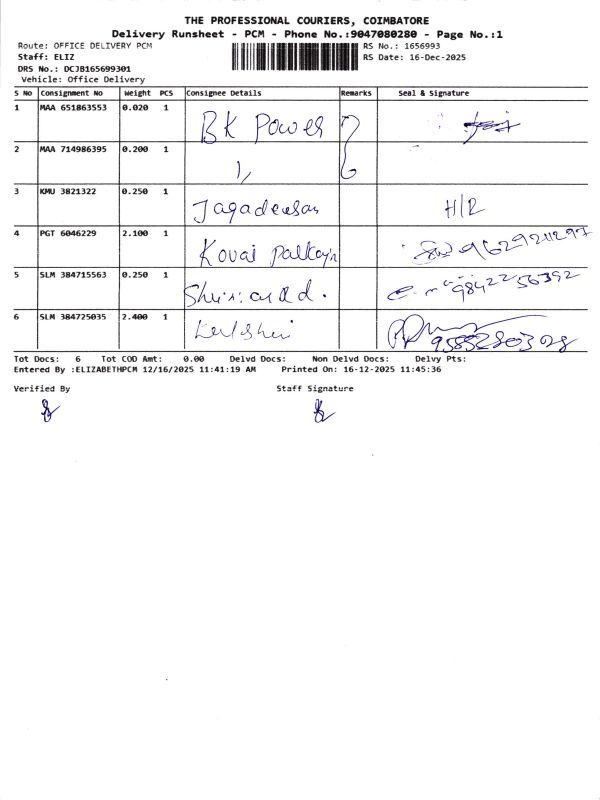 THE PROFESSIONAL COURIERS, COIMBATORE
Delivery Runsheet - PCM - Phone No.:9047080280 - Page No.:1
Route: OFFICE DELIVERY PCM RS No.: 1656993
Staff: ELIZ RS Date: 16-Dec-2025
DRS No.: DCJB165699301
Vehicle: Office Delivery
S No Consignment No Weight PCS Consignee Details Remarks Seal & Signature
1 MAA 651863553 0.020 1 BK Power
2 MAA 714986395 0.200 1 1,
3 KMU 3821322 0.250 1 Jagadeesan H/R
4 PGT 6046229 2.100 1 Kovai 9629211297
5 SLM 384715563 0.250 1 9842256392
6 SLM 384725035 2.400 1
Tot Docs: 6 Tot COD Amt: 0.00 Delvd Docs: Non Delvd Docs: Delvy Pts:
Entered By :ELIZABETHPCM 12/16/2025 11:41:19 AM Printed On: 16-12-2025 11:45:36
Verified By Staff Signature